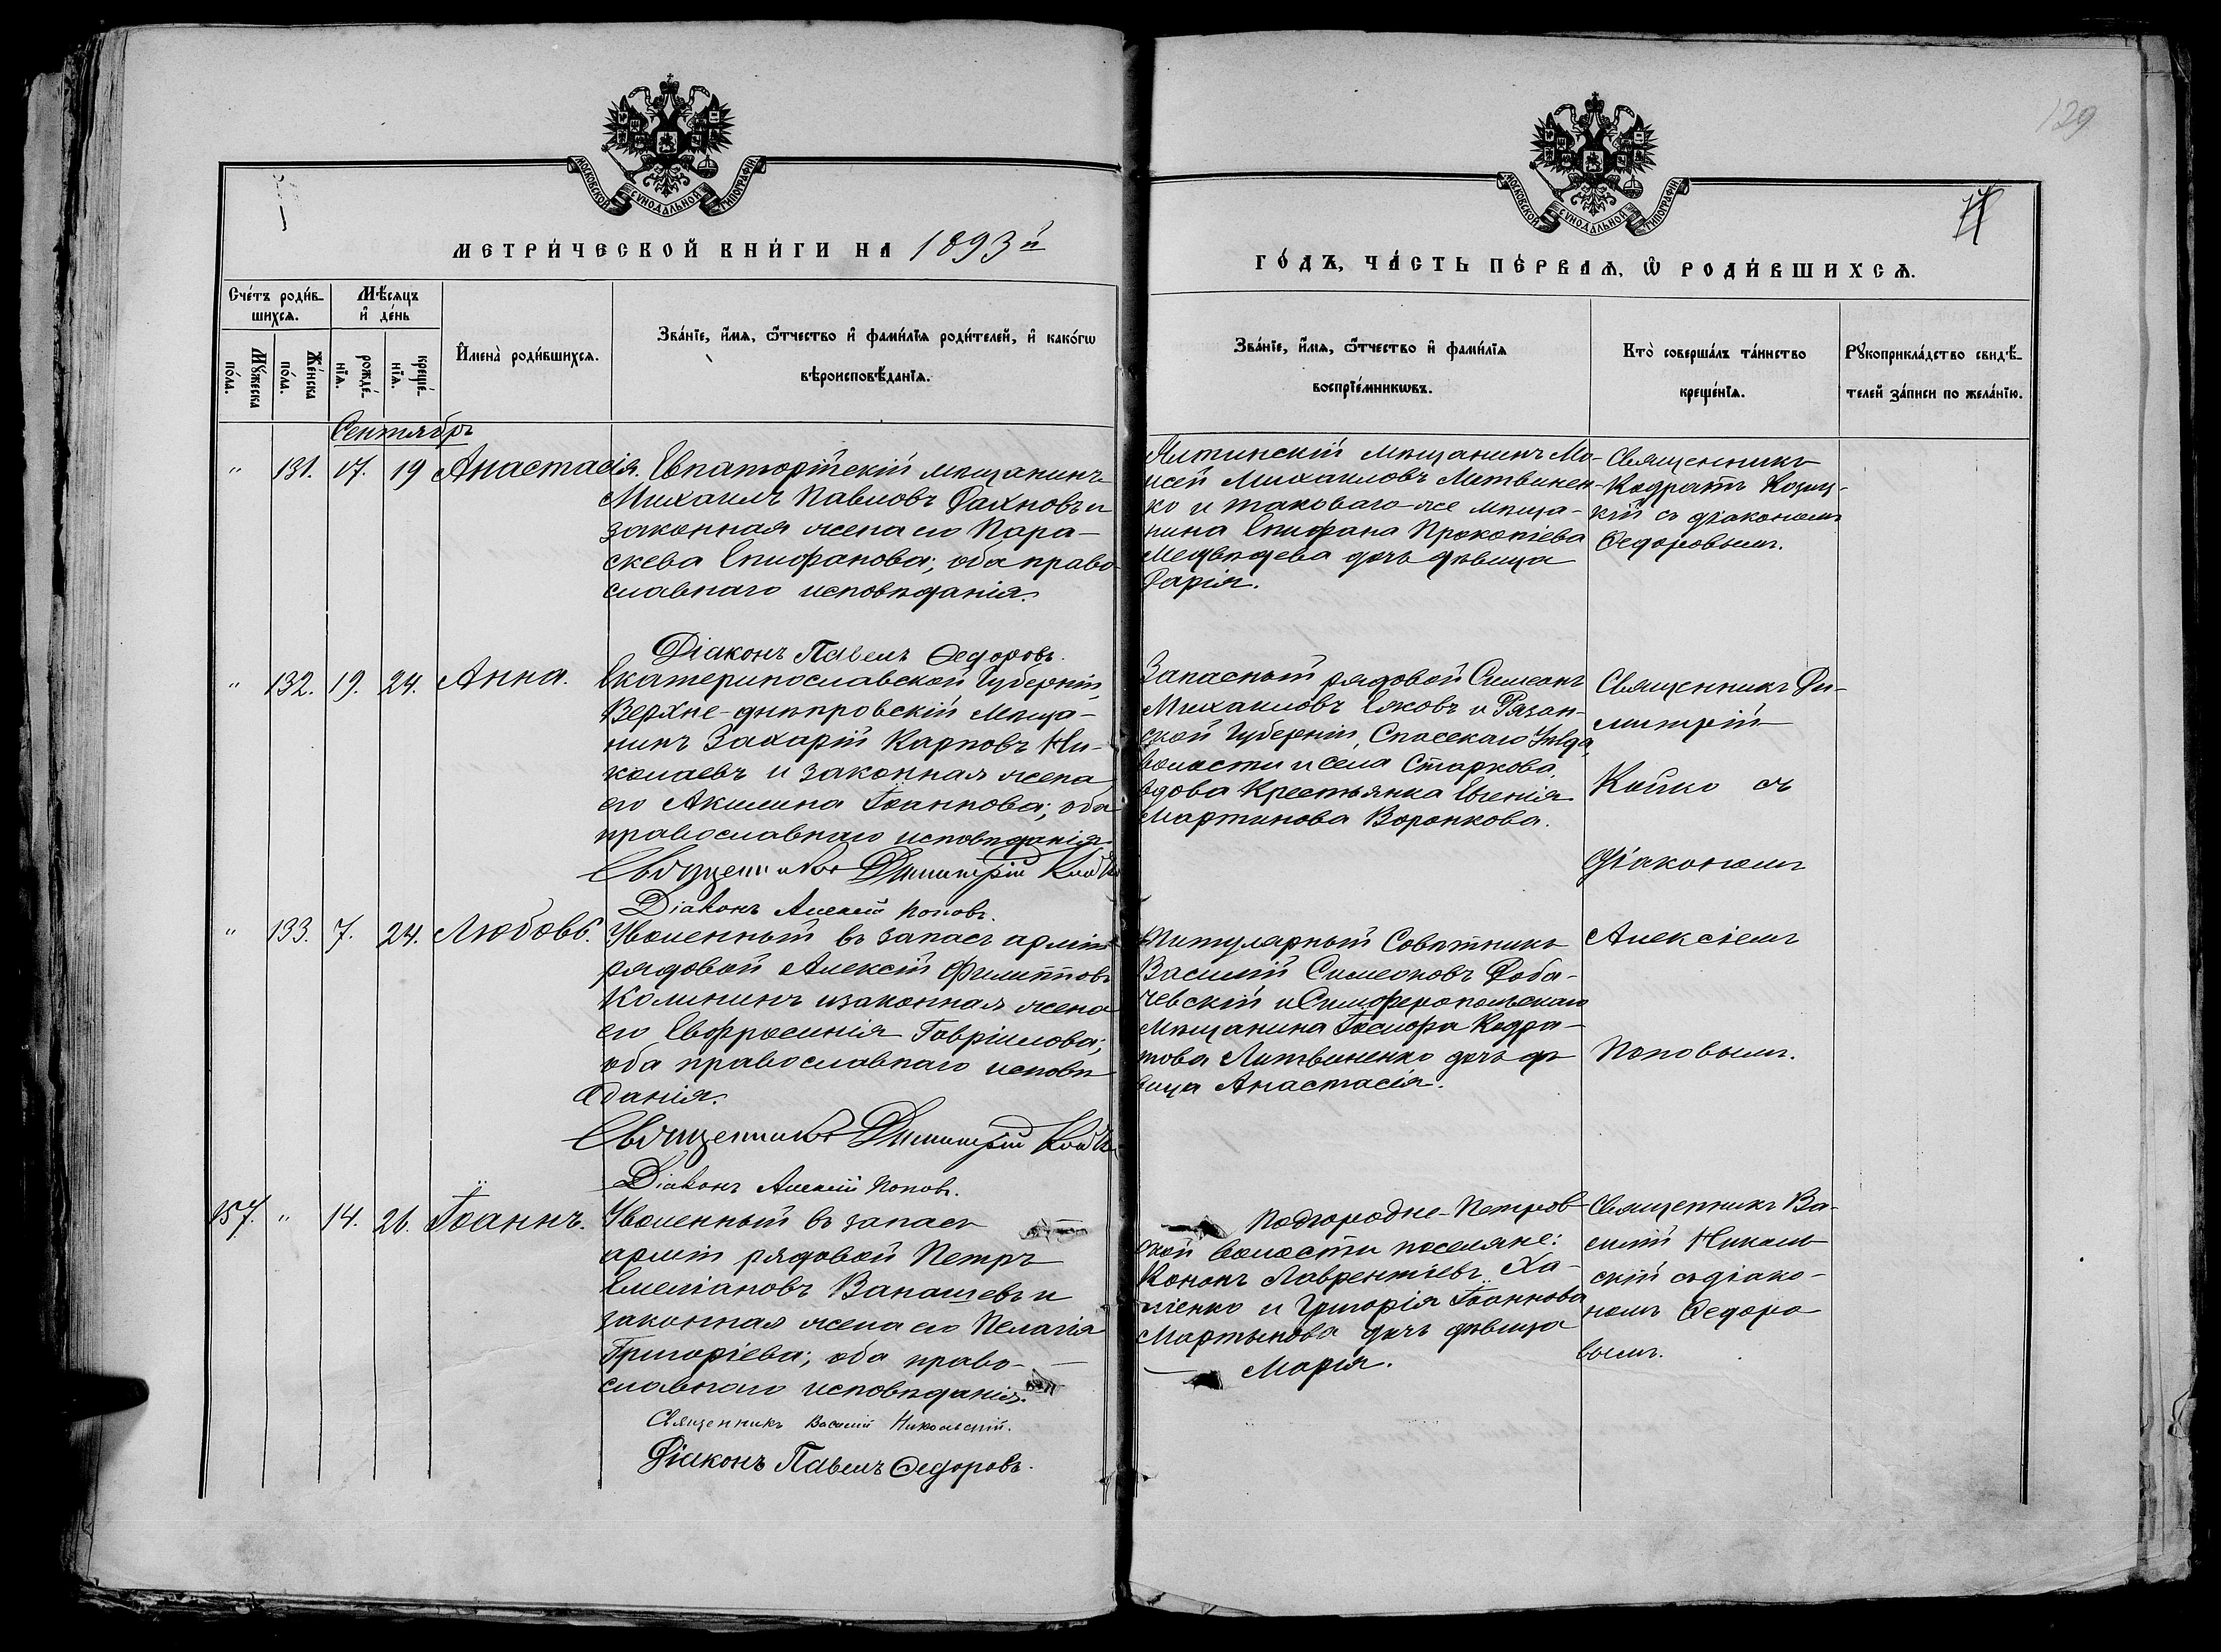 129
МОСКОВСКОЙ СѴНОДАЛЬНОЙ ТИПОГРАФІИ
МОСКОВСКОЙ СѴНОДАЛЬНОЙ ТИПОГРАФІИ
МЕТРИ́ЧЕСКОЙ КНИ́ГИ НА 1893й
ГО́ДЪ, ЧА́СТЬ ПЕ́РВАѦ, Ѡ҆ РОДИ́ВШИХСѦ.
Сче́тъ роди́в-
шихсѧ.
Мꙋ́жеска по́ла.
Же́нска по́ла.
Мѣ́сѧцъ
и҆ де́нь
рожде́-нїѧ.
креще́-нїѧ.
И҆мена̀ роди́вшихсѧ.
Зва́нїе, и҆́мѧ, ѻ҆́тчество и҆ фами́лїѧ роди́телей, и҆ како́гѡ
вѣроисповѣ́данїѧ.
Зва́нїе, и҆́мѧ, ѻ҆́тчество и҆ фами́лїѧ
воспрїе́мникѡвъ.
Кто̀ соверша́лъ та́инство
креще́нїѧ.
Рꙋкоприкла́дство свидѣ́-
телей за́писи по жела́нїю.
Сентябрь
" 131. 17. 19 Анастасія.
Евпаторійскій мѣщанинъ
Михаилъ Павловъ Дахновъ и
законная жена его Пара-
скева Епифанова; оба право-
славнаго исповѣданія.
Діаконъ Павелъ Ѳедоровъ.
мѣщанинъ Мо-
исей Михаиловъ Литвинен-
ко и таковаго-же мѣща-
нина Епифана Прокопіева
Медвѣдева дочь дѣвица
Дарія.
Священникъ
Кодратъ
кій съ діакономъ
Ѳедоровымъ.
" 132. 19. 24. Анна.
Екатеринославской Губерніи,
Верхне-днѣпровскій мѣща-
нинъ Захарій Карповъ Ни-
колаевъ и законная жена
его Акилина Іоаннова; оба
православнаго исповѣданія.
Священникъ Димитрій Койко
Діаконъ Алексій Поповъ.
Запасный рядовой Симеонъ
Михаиловъ и Рязан-
ской Губерніи, Спасскаго Уѣзда,
волости и села Старкова,
вдова крестьянка Евгенія
Мартинова Воронкова.
Священникъ Ди-
митрій
Койко съ
діакономъ
" 133. 7. 24. Любовь.
Уволенный въ запасъ арміи
рядовой Алексій Филипповъ
Калининъ и законная жена
его Евфросинія Гавріилова;
оба православнаго исповѣ-
данія.
Священникъ Димитрій Койко
Діаконъ Алексій Поповъ.
Титулярный Совѣтникъ
Василій Симеоновъ Доба-
чевскій и Симферопольскаго
мѣщанина Іосифа Кодра-
това Литвиненко дочь дѣ-
вица Анастасія.
Алексіемъ
Поповымъ.
157. " 14. 26. Іоаннъ.
Уволенный въ запасъ
арміи рядовой Петръ
Емеліановъ Ванашевъ и
законная жена его Пелагія
Григоріева; оба право-
славнаго исповѣданія.
Священникъ Василій Никольскій.
Діаконъ Павелъ Ѳедоровъ.
Подгородне-Петров-
ской волости поселяне:
Кононъ Лаврентіевъ
и Григорія Іоаннова
Мартынова дочь дѣвица
Марія.
Священникъ Ва-
силій Николь-
скій съ діако-
номъ Ѳедоро-
вымъ.